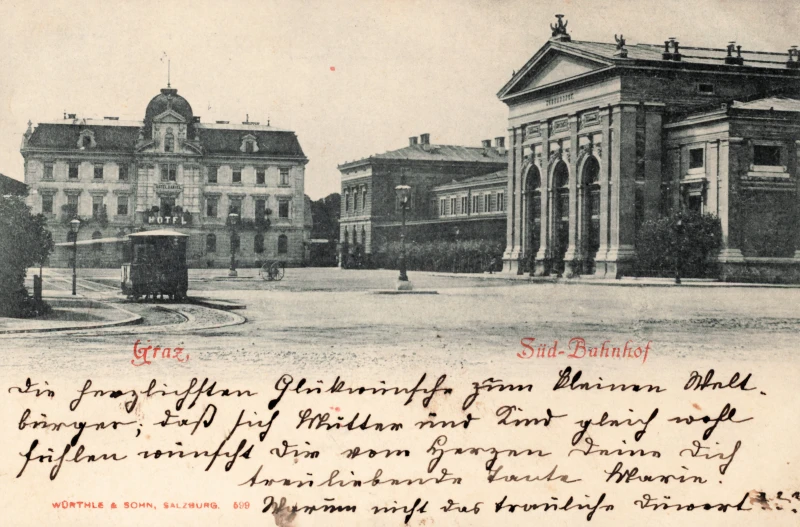 HOTEL DANIEL
HOTEL
SÜDBAHNHOF
Graz,
Süd-Bahnhof
Die herzlichsten Glükwünsche zum kleinen Welt-
bürger; daß sich Mutter und Kind gleich wohl
fühlen wünscht Dir vom Herzen deine Dich
treuliebende Tante Marie.
WÜRTHLE & SOHN, SALZBURG. 599
Warum nicht das trauliche Duwort???